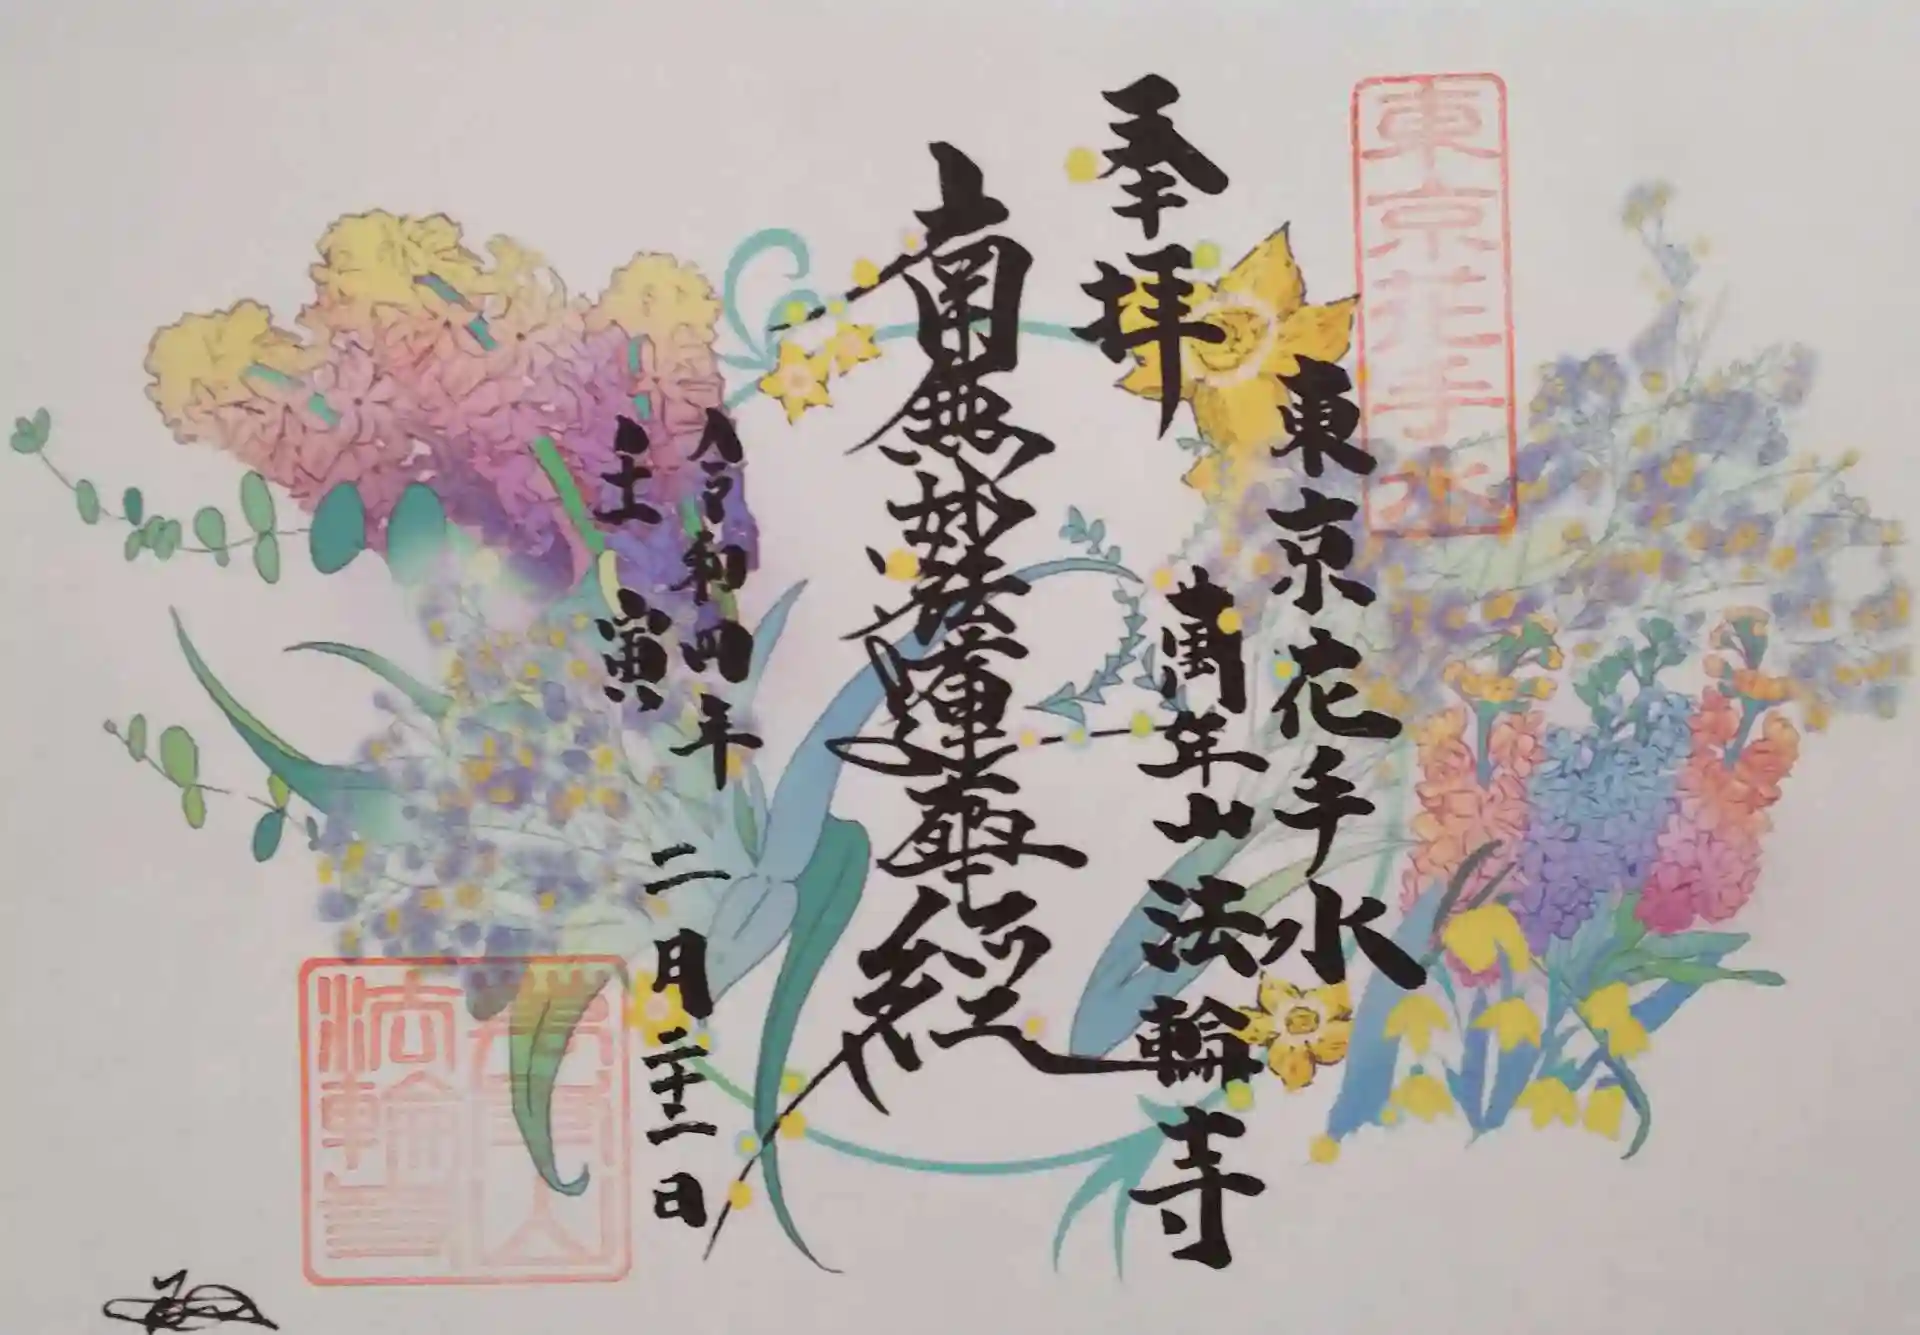 東京花手水
東京花手水
奉拝
萬年山法輪寺
南無妙法蓮華經
令和四年 二月二十二日
壬寅
萬年山
法輪寺